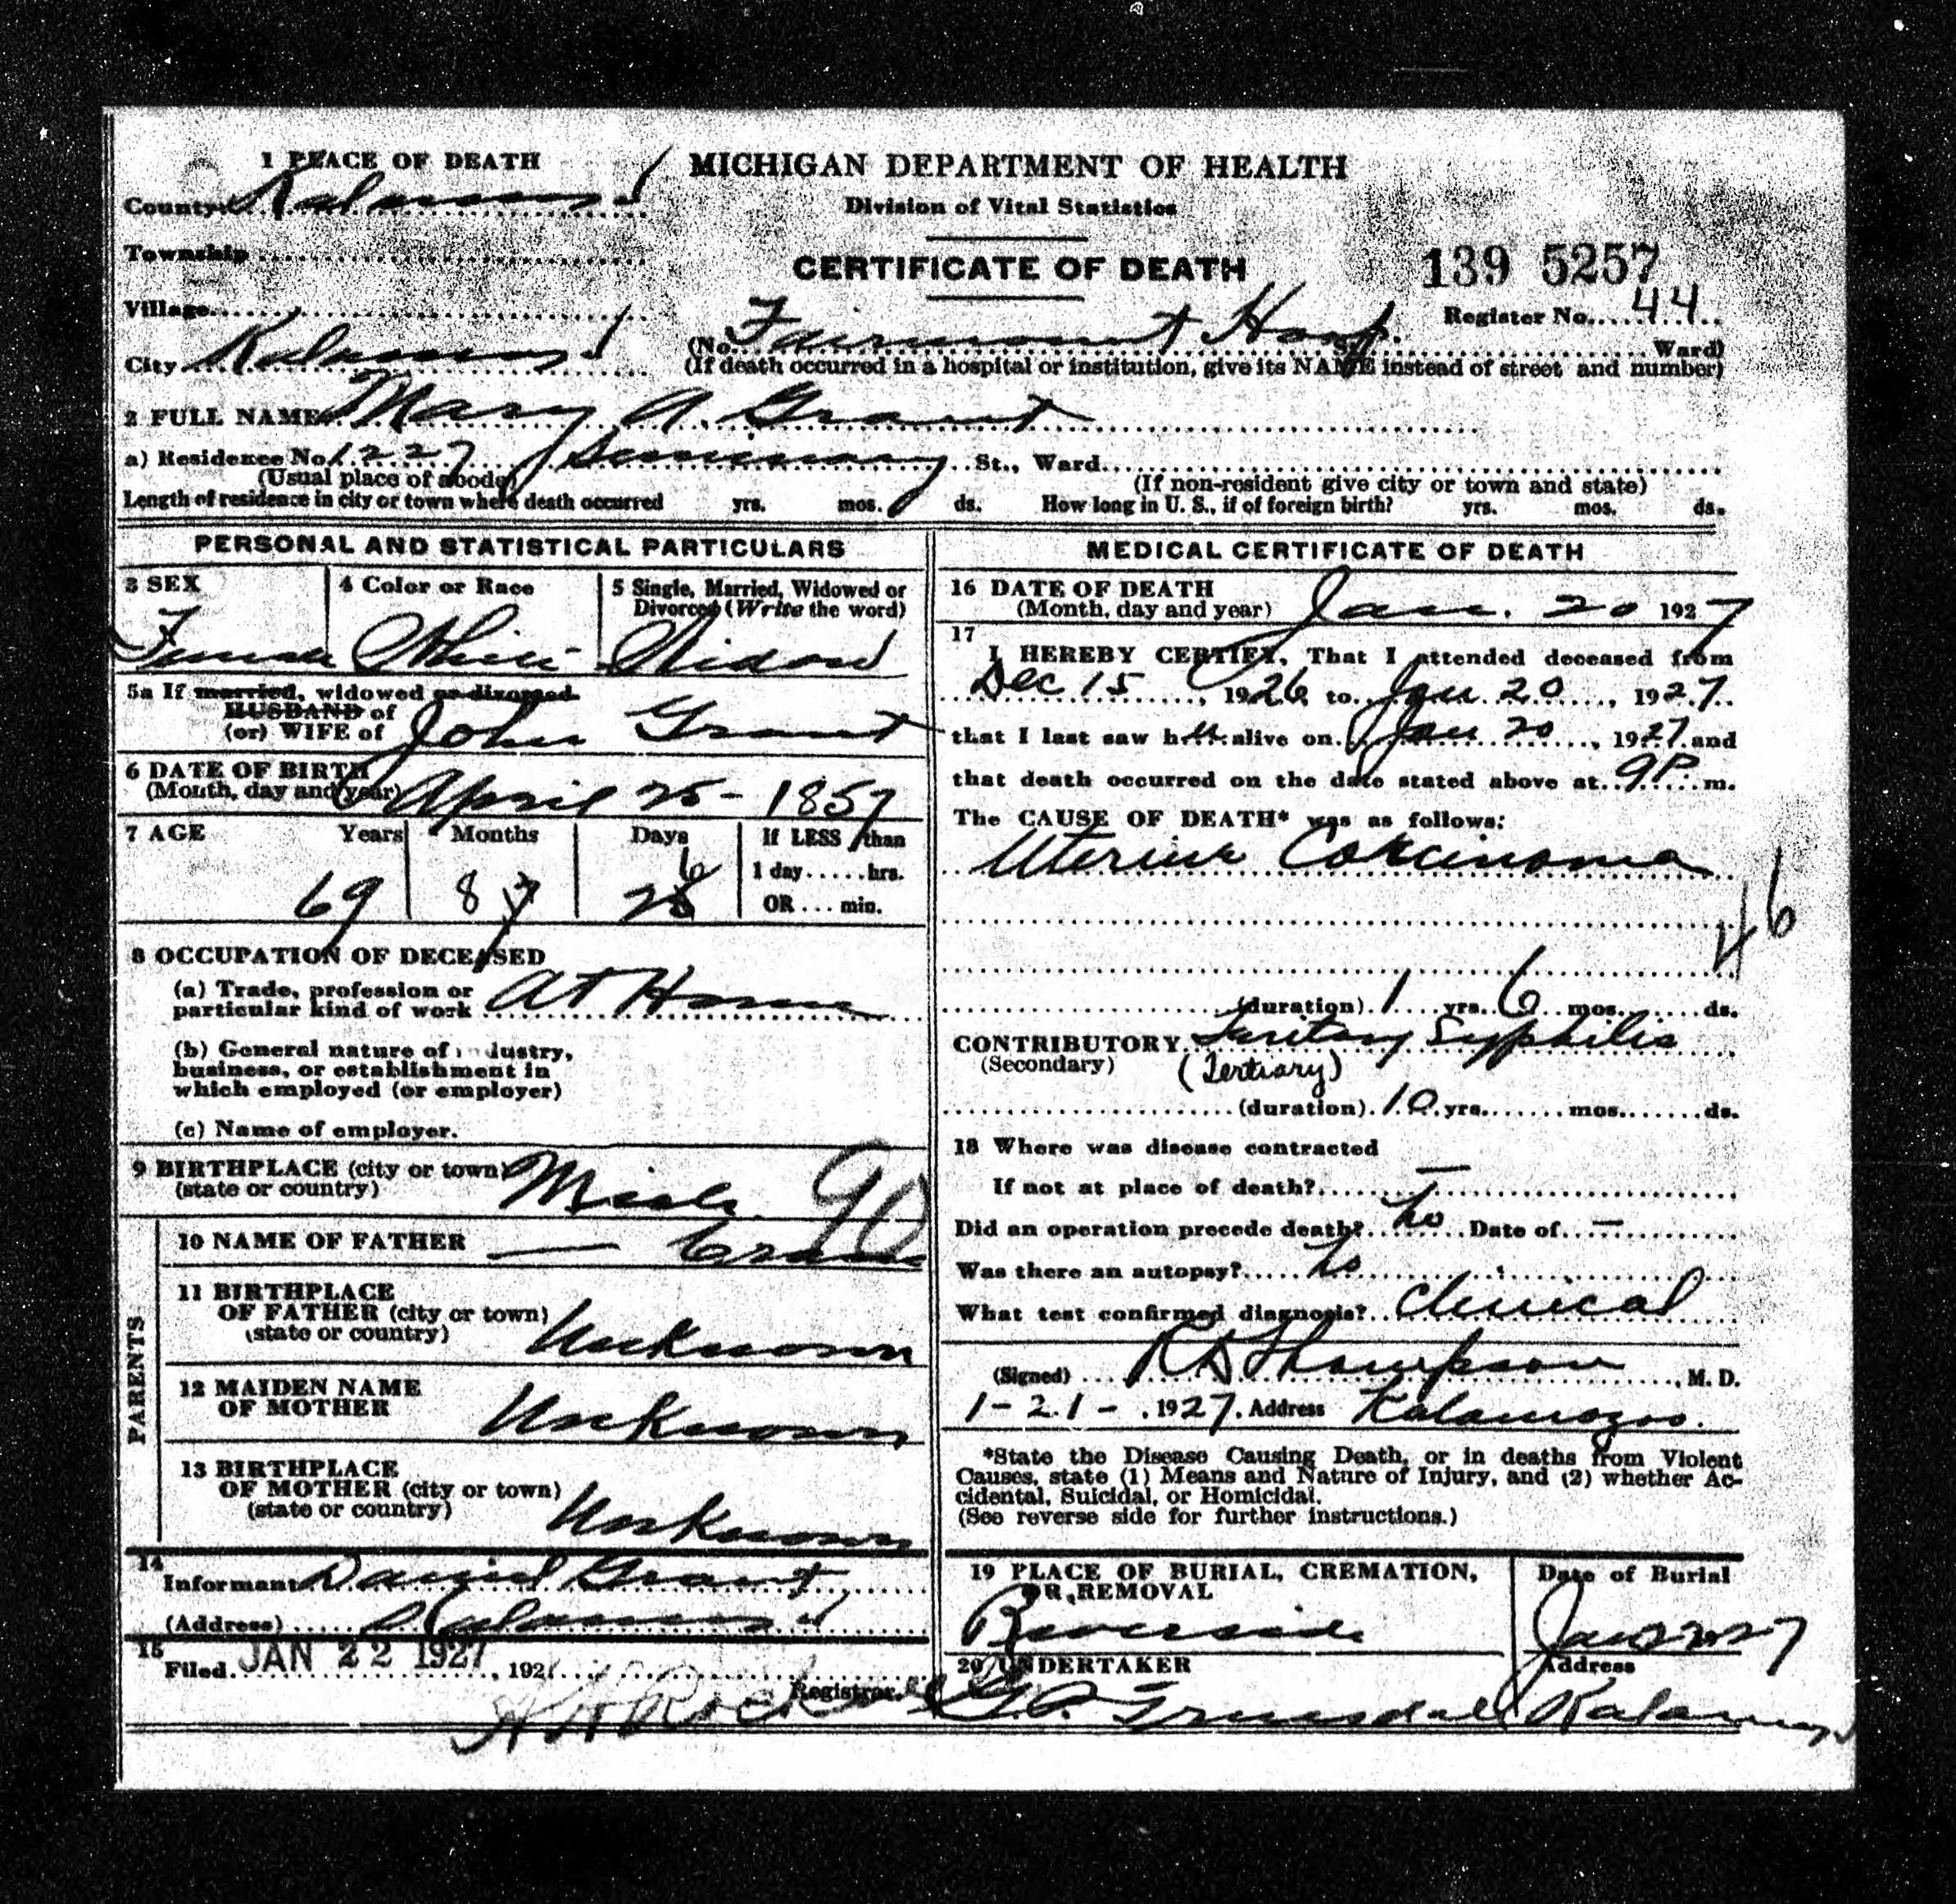 1 PLACE OF DEATH
MICHIGAN DEPARTMENT OF HEALTH
County Kalamazoo
Division of Vital Statistics
Township
CERTIFICATE OF DEATH
139 5257
Village
Register No. 44
City Kalamazoo
(No. Fairmount Hosp. St. Ward)
(If death occurred in a hospital or institution, give its NAME instead of street and number)
2 FULL NAME Mary A. Grant
a) Residence No. 1227 Seminary St., Ward
(Usual place of abode)
(If non-resident give city or town and state)
Length of residence in city or town where death occurred yrs. mos. ds. How long in U. S., if of foreign birth? yrs. mos. ds.
PERSONAL AND STATISTICAL PARTICULARS
3 SEX
4 Color or Race
5 Single, Married, Widowed or
Divorced (Write the word)
Female White Widow
5a If married, widowed or divorced
HUSBAND of
(or) WIFE of John Grant
6 DATE OF BIRTH
(Month, day and year) April 25 - 1857
7 AGE Years Months Days If LESS than
1 day.....hrs.
OR ... min.
69 8 26
8 OCCUPATION OF DECEASED
(a) Trade, profession or
particular kind of work At Home
(b) General nature of industry,
business, or establishment in
which employed (or employer)
(c) Name of employer.
9 BIRTHPLACE (city or town)
(state or country) Mich. 90
PARENTS
10 NAME OF FATHER —
11 BIRTHPLACE
OF FATHER (city or town)
(state or country) Unknown
12 MAIDEN NAME
OF MOTHER Unknown
13 BIRTHPLACE
OF MOTHER (city or town)
(state or country) Unknown
14
Informant Daniel Grant
(Address) Kalamazoo
15
Filed JAN 22 1927, 192
Registrar.
MEDICAL CERTIFICATE OF DEATH
16 DATE OF DEATH
(Month, day and year) Jan. 20 1927
17
I HEREBY CERTIFY, That I attended deceased from
Dec 15, 1926 to Jan 20, 1927
that I last saw her alive on Jan 20, 1927 and
that death occurred on the date stated above at 9P. m.
The CAUSE OF DEATH* was as follows:
Uterine Carcinoma
46
(duration) 1 yrs. 6 mos. ds.
CONTRIBUTORY Teritary Syphilis
(Secondary) (Tertiary)
(duration) 10 yrs. mos. ds.
18 Where was disease contracted
If not at place of death? —
Did an operation precede death? no Date of —
Was there an autopsy? no
What test confirmed diagnosis? Clinical
(Signed) Thompson, M. D.
1-21-, 1927. Address Kalamazoo.
*State the Disease Causing Death, or in deaths from Violent
Causes, state (1) Means and Nature of Injury, and (2) whether Ac-
cidental, Suicidal, or Homicidal.
(See reverse side for further instructions.)
19 PLACE OF BURIAL, CREMATION,
OR REMOVAL
Date of Burial
Riverside
Jan 22 27
20 UNDERTAKER
Address
Kalamazoo